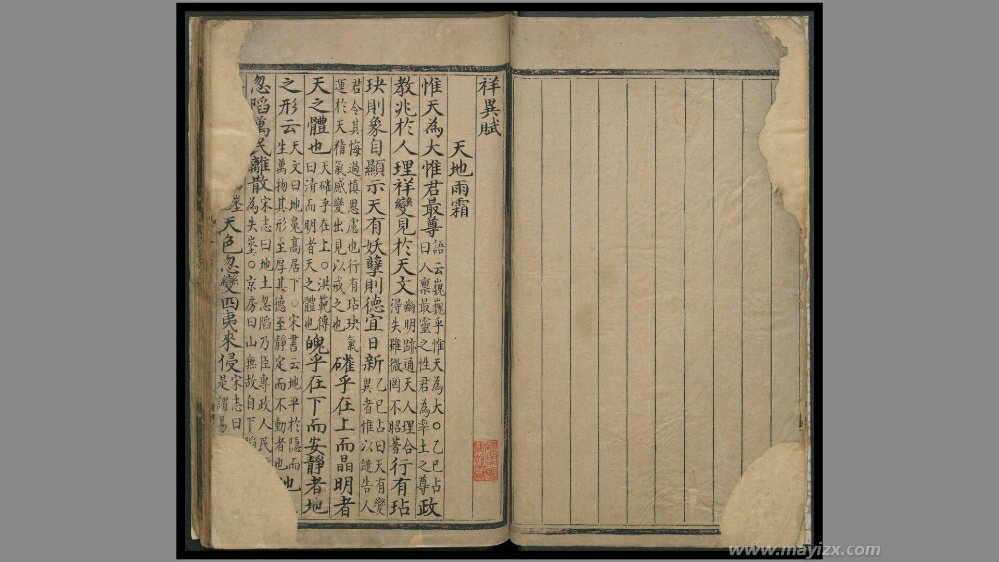 祥異賦
天地雨霜
惟天為大惟君最尊語云巍巍乎惟天為大○乙巳占曰人稟最靈之性君為率土之尊政
教兆於人理祥變見於天文幽明跡通天人理合得失雖微罔不昭著行有玷
玦則象自顯示天有妖孽則德宜日新乙巳占曰天有變異者惟以譴告人
君令其悔過慎思慮也行有玷玦氣運於天精氣感變出見以戒之也確乎在上而晶明者
天之體也天確乎在上○洪範傳曰清而明者天之體也魄乎在下而安靜者地
之形云天文曰地𡱈高居下○宋書云地平於隱而生萬物其形至厚其德至靜定而不動者也地
忽陷萬民離散宋志曰地土忽陷乃臣專政人民為失㙜○京房曰山無故自下陷
天色忽變四夷來侵宋志曰是謂易
www.mayizx.com